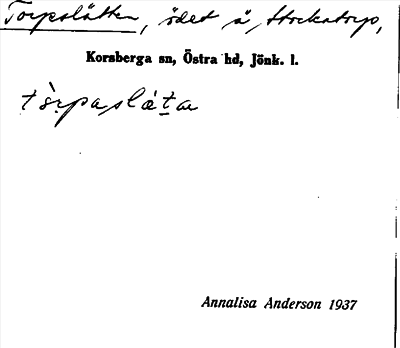 Torpslätten, ödet å, Stockatorp,
Korsberga sn, Östra hd, Jönk. l.
tòrpaslát̲a
Annalisa Anderson 1937